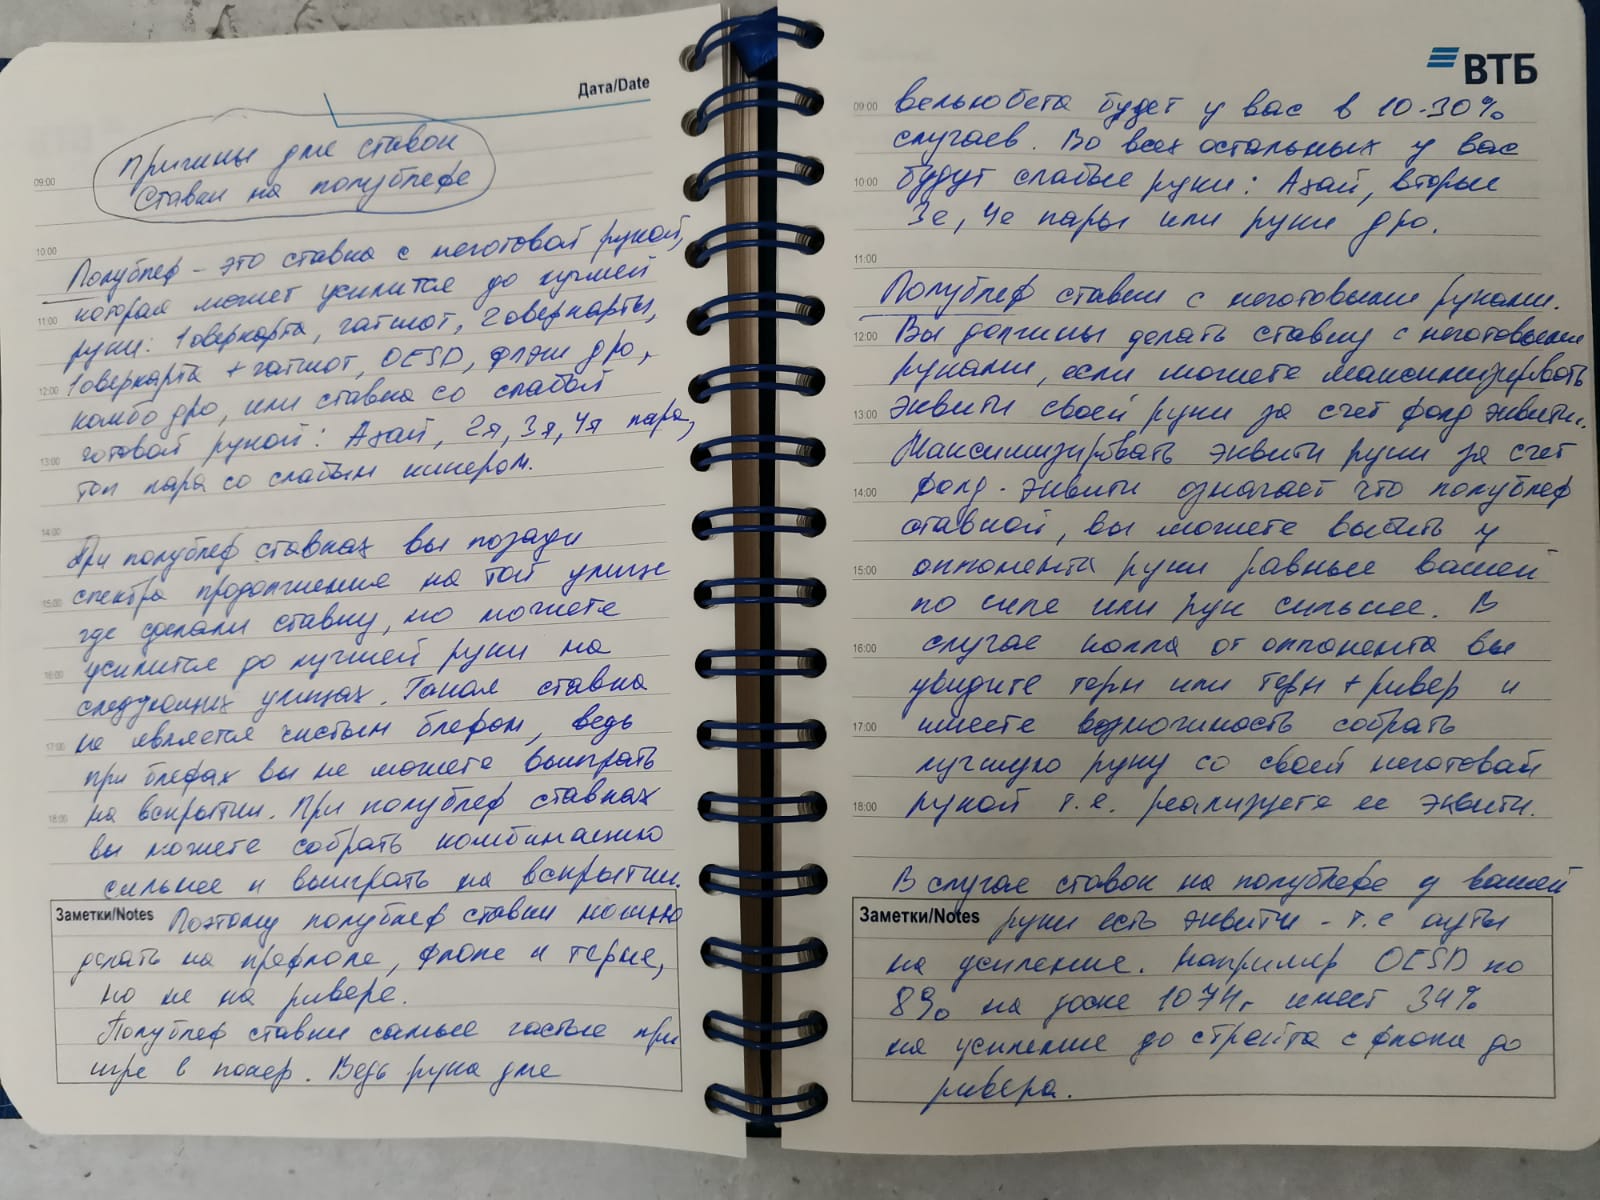 Дата/Date
Причины для ставок
Ставки на полублефе
09:00
10:00
Полублеф - это ставка с неготовой рукой,
которая может усилится до лучшей
11:00
руки: 1 оверкарта, гатшот, 2 оверкарты,
1 оверкарта + гатшот, OESD, флэш дро,
12:00
комбо дро, или ставка со слабой
готовой рукой: Ахай, 2я, 3я, 4я пара,
13:00
топ пара со слабым кикером.
14:00
При полублеф ставках вы позади
спектра продолжения на той улице
15:00
где сделали ставку, но можете
усилится до лучшей руки на
16:00
следующих улицах. Такая ставка
не является чистым блефом, ведь
17:00
при блефах вы не можете выиграть
на вскрытии. При полублеф ставках
18:00
вы можете собрать комбинацию
сильнее и выиграть на вскрытии.
Заметки/Notes
Поэтому полублеф ставки можно
делать на префлопе, флопе и терне,
но не на ривере.
Полублеф ставки самые частые при
игре в покер. Ведь рука для
ВТБ
09:00
вельюбета будет у вас в 10-30%
случаев. Во всех остальных у вас
10:00
будут слабые руки: Ахай, вторые
3е, 4е пары или руки дро.
11:00
Полублеф ставки с неготовыми руками.
12:00
Вы должны делать ставку с неготовыми
руками, если можете максимизировать
13:00
эквити своей руки за счет фолд эквити.
Максимизировать эквити руки за счет
14:00
фолд-эквити означает что полублеф
ставкой, вы можете выбить у
15:00
оппонента руки равные вашей
по силе или рук сильнее. В
16:00
случае колла от оппонента вы
увидите терн или терн + ривер и
17:00
имеете возможность собрать
лучшую руку со своей неготовой
18:00
рукой т.е. реализуете ее эквити.
В случае ставок на полублефе у вашей
Заметки/Notes
руки есть эквити - т.е ауты
на усиление. Например OESD по
на доске имеет 34%
на усиление до стрейта с флопа до
ривера.